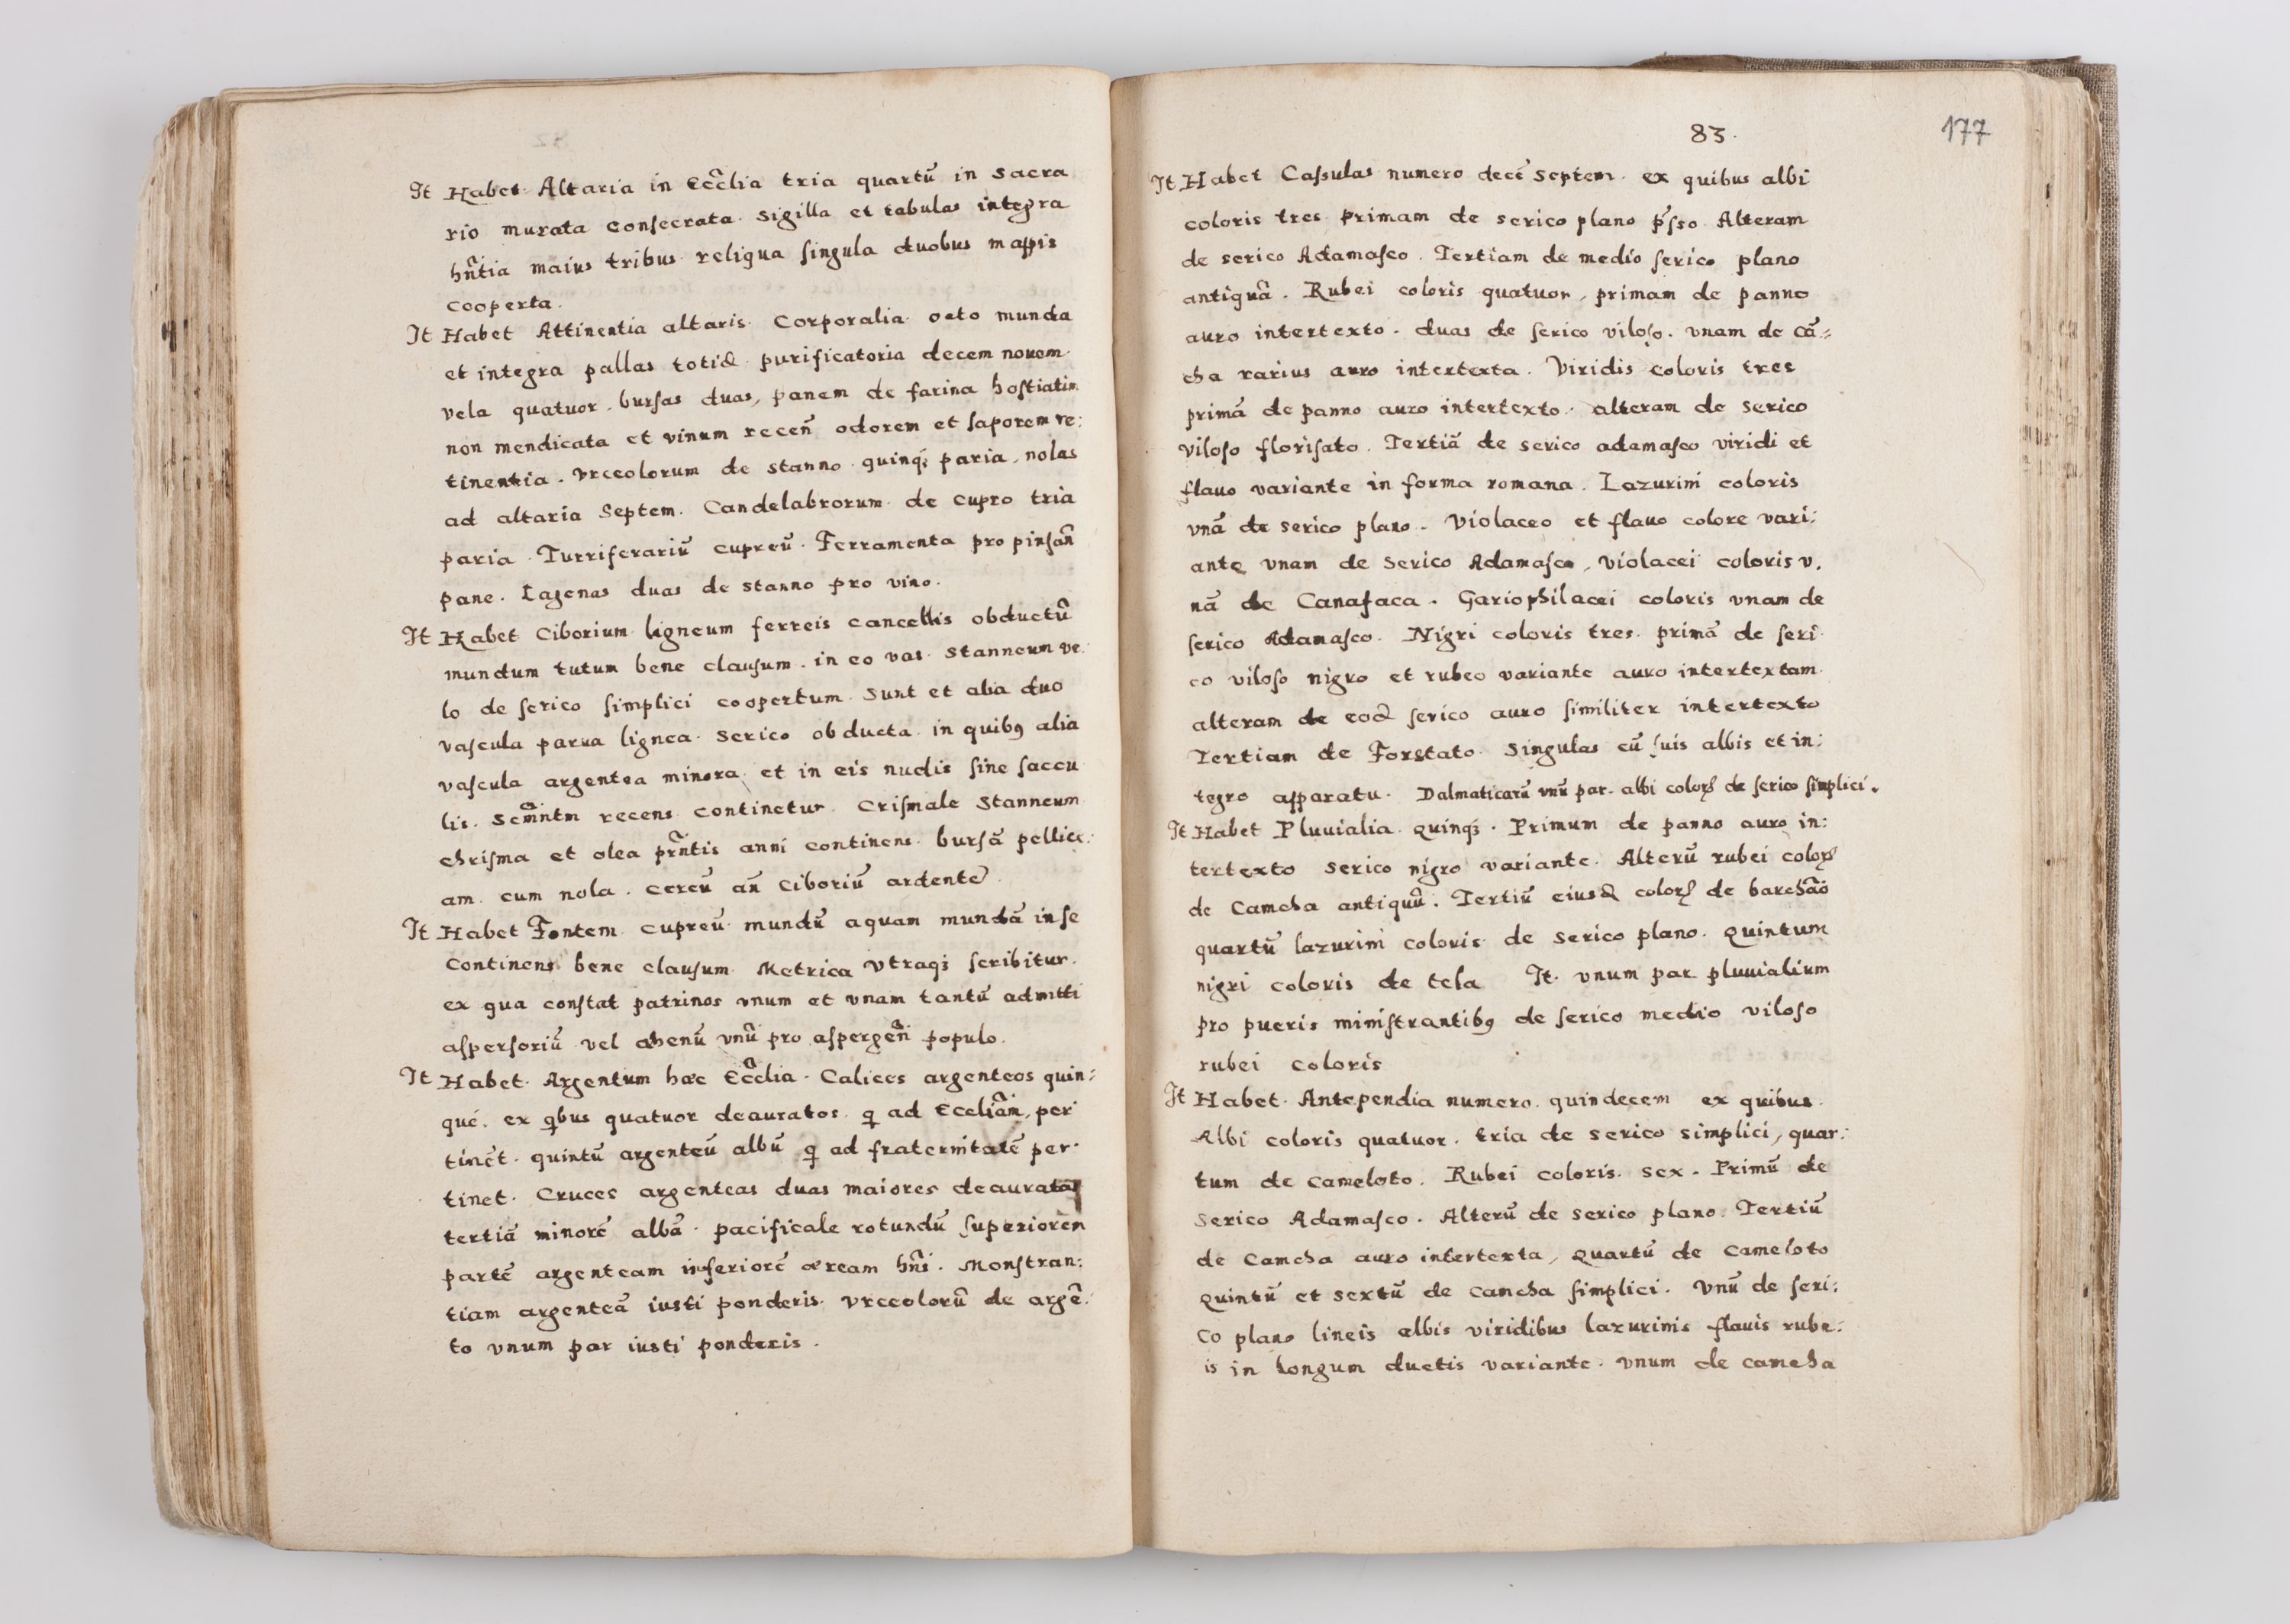 It Habet Altaria in Eccl̃ia tria quartũ in Sacra
rio murata consecrata. Sigilla et tabulas integra
hñtia maius tribus reliqua singula duobus mappis
cooperta.
It Habet Attinentia altaris. Corporalia octo munda
et integra pallas totid. purificatoria decem novem.
vela quatuor. bursas duas, panem de farina hostiatim
non mendicata et vinum receñ odorem et saporem re:
tinentia. Vrceolorum de stanno quinq; paria, nolas
ad altaria Septem. Candelabrorum de cupro tria
paria. Turriferariũ cupreũ. Ferramenta pro pinsañ
pane. Lagenas duas de stanno pro vino.
It Habet Ciborium ligneum ferreis cancellis obductũ
mundum tutum bene clausum. in eo vas Stanneum ve:
lo de serico simplici coopertum. Sunt et alia duo
vascula parua lignea serico obducta in quibꝯ alia
vascula argentea minora et in eis nudis sine saccu
lis. Scm̃ntm recens continetur. Crismale Stanneum
chrisma et olea prñtis anni continens. bursã pellice:
am. cum nola. cereũ añ Ciboriũ ardente.
It Habet Fontem cupreũ mundũ aquam mundã in se
continens bene clausum. Metrica vtraq; scribitur.
ex qua constat patrinos vnum et vnam tantũ admitti
aspersoriũ vel ahenũ vnũ pro aspergeñ populo.
It Habet Argentum hæc Eccl̃ia. Calices argenteos quin:
que. ex qbus quatuor deauratos q ad Eccliãm, per
tinẽt. quintũ argenteũ albũ q ad fraternitatẽ per
tinet. Cruces argenteas duas maiores deauratas
tertiã minorẽ albã. pacificale rotundũ superiorem
partẽ argenteam inferiorẽ æream hñs. Monstran:
tiam argenteã iusti ponderis. Vrceolorũ de argẽ:
to vnum par iusti ponderis.
83.
177
It Habet Cassulas numero decẽ Septem. ex quibus albi
coloris tres primam de serico plano p̃sso. Alteram
de serico Adamasco. Tertiam de medio serico plano
antiquã. Rubei coloris quatuor, primam de panno
auro intertexto. duas de serico viloso. vnam de cã:
cha rarius auro intertexta. Viridis coloris tres
primã de panno auro intertexto. alteram de serico
viloso florisato. Tertiã de serico adamasco viridi et
flauo variante in forma romana. Lazurini coloris
vnã de serico plano. Violaceo et flauo colore vari:
ante vnam de Serico Adamasco, violacei coloris v,
nã de Canafaca. Gariophilacei coloris vnam de
serico Adamasco. Nigri coloris tres. primã de seri
co viloso nigro et rubeo variante auro intertextam
alteram de eod serico auro similiter intertexto
Tertiam de Forstato. Singulas cũ suis albis et in:
tegro apparatu. Dalmaticarũ vnũ par. albi colorꝭ de serico simplici.
It Habet Pluuialia quinq;. Primum de panno auro in:
tertexto serico nigro variante. Alterũ rubei colorꝭ
de Camcha antiquũ. Tertiũ eiusd colorꝭ de barchão
quartũ lazurini coloris de serico plano. Quintum
nigri coloris de tela It. vnum par pluuialium
pro pueris ministrantibꝯ de serico medio viloso
rubei coloris
It Habet Antependia numero. quindecem ex quibus
Albi coloris quatuor. tria de serico simplici, quar:
tum de cameloto. Rubei coloris. sex. Primũ de
serico Adamasco. Alterũ de serico plano. Tertiũ
de camcha auro intertexta, Quartũ de cameloto
Quintũ et sextũ de camcha simplici. Vnũ de seri:
co plano lineis albis viridibus lazurinis flauis rube:
is in longum ductis variante. vnum de camcha